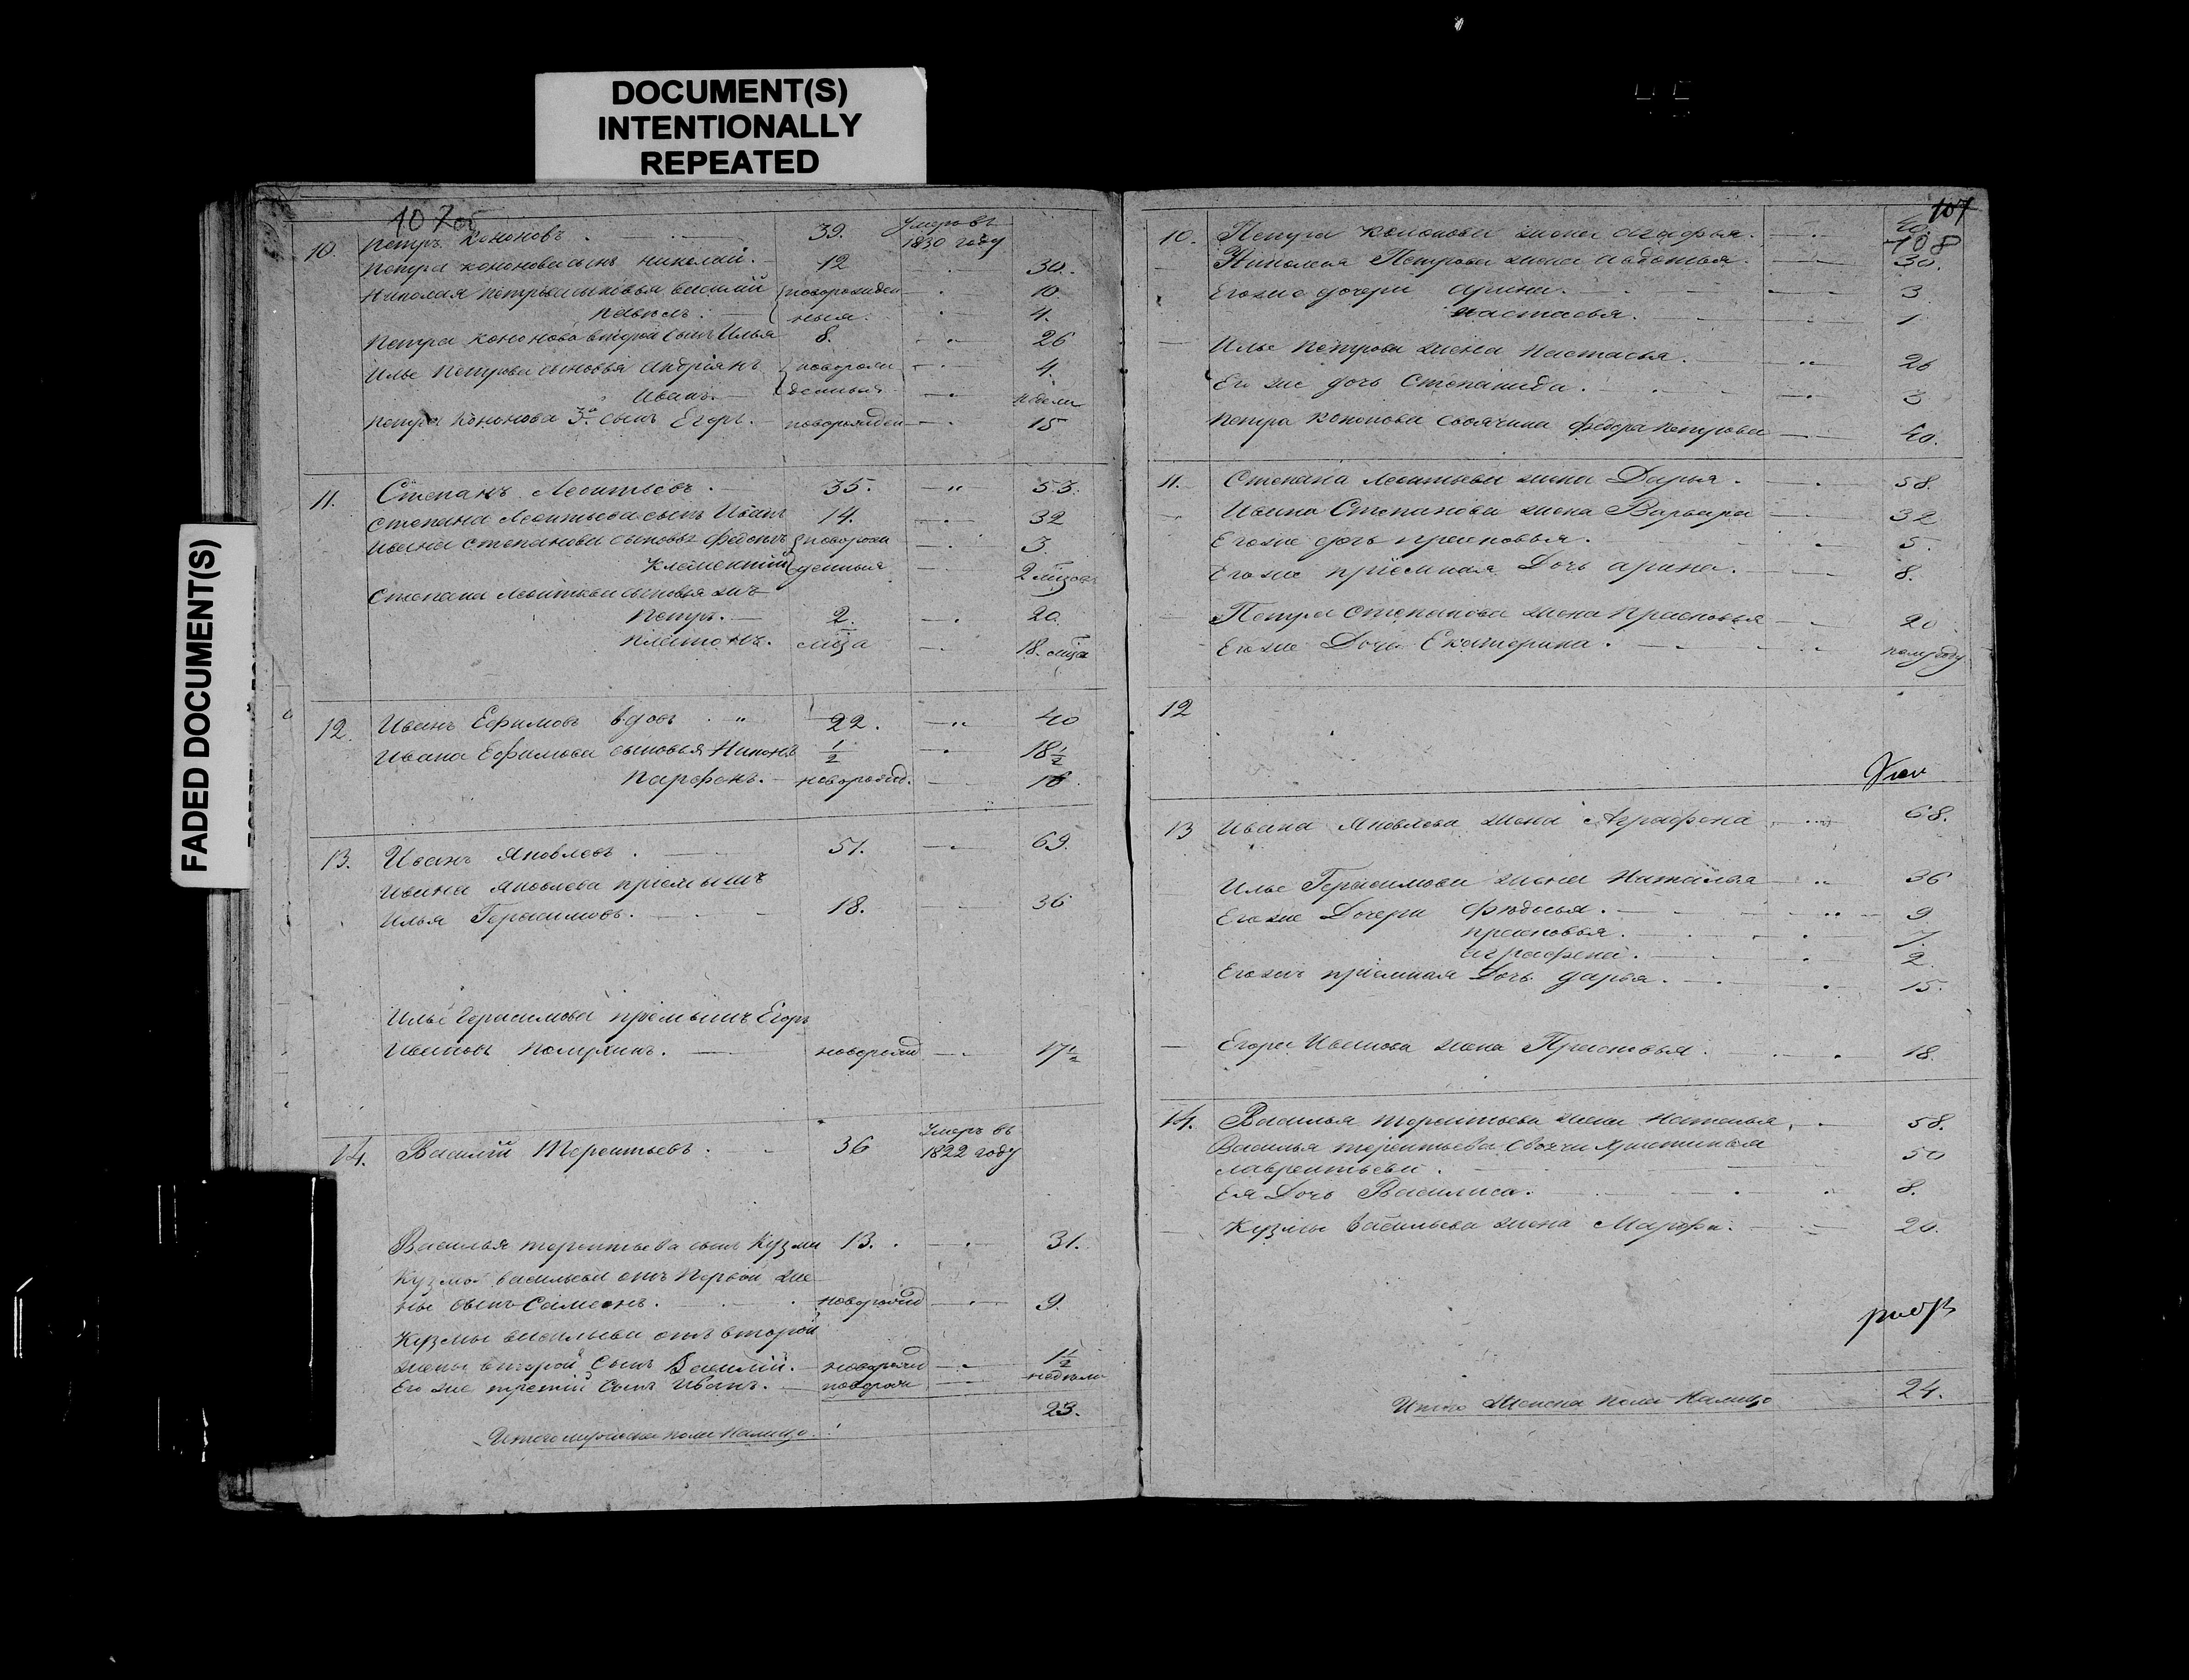 DOCUMENT(S)
INTENTIONALLY
REPEATED
FADED DOCUMENT(S)
107об
10. Петръ Кононовъ. 39. Умеръ въ 1830 году
Петра Кононова сынъ Николай. 12 30.
Николая Петрова сыновья Василий новорожден 10
Павелъ. ныя. 4.
Петра Кононова второй сынъ Илья 8. 26
Илье Петрова сыновья Андріянъ новорож 4.
Иванъ. денныя недели
Петра Кононова 3й сынъ Егоръ. новорожден 15
11. Степанъ Леонтьевъ. 35. 53.
Степана Леонтьева сынъ Иванъ 14. 32
Ивана Степанова сыновья Федотъ новорож 3.
Клементий денныя 2 мѣсев
Степана Леонтьева сыновья же
Петръ. 2. 20.
Платонъ. мѣза 18. мѣза
12. Иванъ Ефимовъ вдовъ. 22. 40
Ивана Ефимова сыновья Никонъ 1/2 18 1/2
Парфенъ. новорожд. 18.
13. Иванъ Яковлевъ. 51. 69.
Ивана Яковлева приемышъ
Илья Герасимовъ. 18. 36
Илье Герасимова приемышъ Егоръ
Ивановъ новорожд 17 1/2
14. Василій Терентьевъ. 36 Умеръ въ 1822 году
Василья Терентьева сынъ Кузма 13. 31.
Кузмы Васильева отъ первой же
ны сынъ Самсонъ. новорожд 9.
Кузмы Васильева отъ второй
жены второй сынъ Василій. новорожд 1 1/2
Его же третий сынъ Иванъ. новорож недели
23.
Итого мужеска пола налицо.
107
108
10. Петра Кононова жена Агафья. 40.
Николая Петрова жена Авдотья. 30.
Его же дочери Арина. 3
Настасья. 1
Илье Петрова жена Настасья. 26
Его же дочь Степанида. 3
Петра Кононова своячина Федора Петрова 40.
11. Степана Леонтьева жена Дарья. 58.
Ивана Степанова жена Варвара 32
Его же дочь Прасковья. 5.
Его же приемная дочь Арина. 8.
Петра Степанова жена Прасковья 20
Его же дочь Екатерина. полугоду
12
13 Ивана Яковлева жена Аграфена 68.
Илье Герасимова жена Наталья 36
Его же дочери Федосья. 9
Прасковья. 7.
Аграфена. 2
Его же приемная дочь Дарья. 15.
Егора Иванова жена Прасковья. 18.
14. Василья Терентьева жена Наталья. 58.
Василья Терентьева Христинья
Лаврентьева. 50
Ея дочь Василиса. 8.
Кузмы Васильева жена Марфа. 20.
Итого женска пола налицо 24.